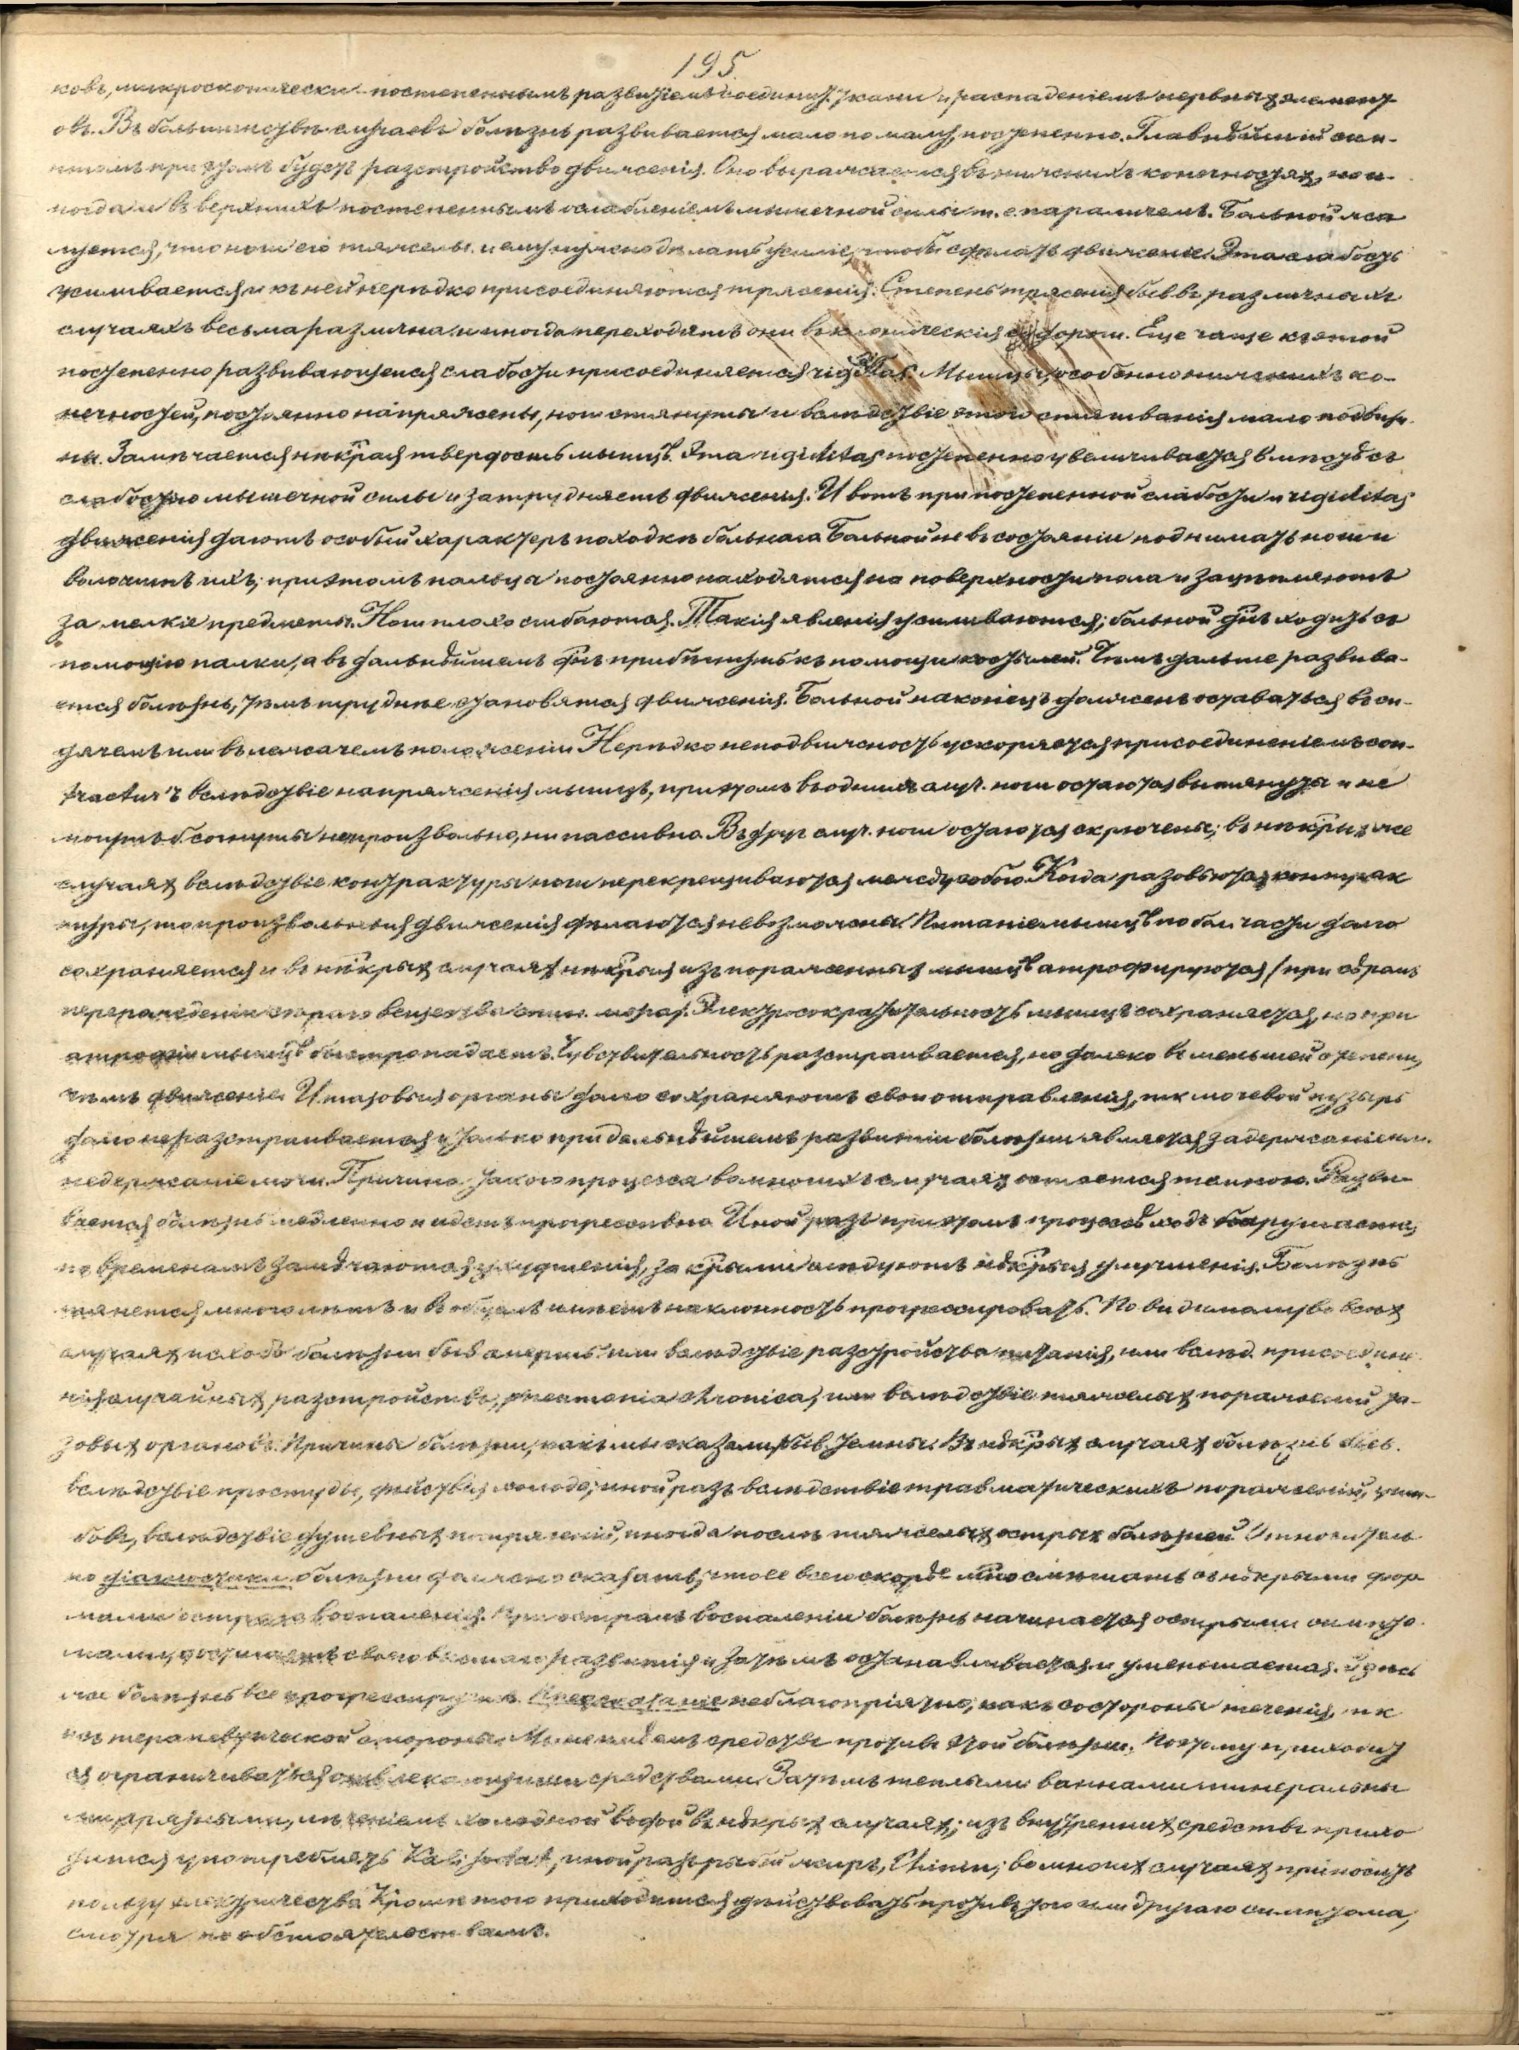 195
ковъ, микроскопически постепеннымъ развитіемъ соединит. ткани и распаденіемъ нервныхъ элемент
овъ. Въ большинствѣ случаевъ болѣзнь развивается мало по малу, постепенно. Главнѣйшій сим-
птомъ при этомъ будетъ разстройство движенія. Оно выражается въ нижнихъ конечностяхъ, но и-
ногда и въ верхнихъ постепеннымъ ослабленіемъ мышечной силы т. е. параличемъ. Больной жа
луется, что ноги его тяжелы и ему нужно дѣлать усиліе, чтобы сдѣлать движеніе. Эта слабость
усиливается и къ ней нерѣдко присоединяются трясенія. Степень трясенія быв. въ различныхъ
случаяхъ весьма различна и иногда переходятъ они въ клоническія судороги. Еще чаще къ этой
постепенно развивающейся слабости присоединяется rigiditas. Мышцы, особенно нижнихъ ко-
нечностей, постоянно напряжены, ноги стянуты и вслѣдствіе этого стягиванія мало подвиж
ны. Замѣчается нѣкрая твердость мышцъ. Эта rigiditas постепенно увеличивается вмѣстѣ съ
слабостью мышечной силы и затрудняетъ движенія. И вотъ при постепенной слабости и rigiditas
движенія даютъ особый характеръ походкѣ больнаго. Больной не въ состояніи поднимать ноги и
волочитъ ихъ; при этомъ пальцы постоянно находятся на поверхности пола и зацѣпляютъ
за мелкіе предметы. Ноги плохо сгибаются. Такія явленія усиливаются; больной дѣ ходить съ
помощію палки, а въ дальнѣйшемъ дѣ прибѣгнуть къ помощи костылей. Чѣмъ дальше развива-
ется болѣзнь, тѣмъ труднѣе становятся движенія. Больной наконецъ долженъ оставаться въ си-
дячемъ или въ лежачемъ положеніи. Нерѣдко неподвижность ускоряется присоединеніемъ con-
tractur'ъ вслѣдствіе напряженія мышцъ, при этомъ въ однихъ случ. ноги остаются вытянуты и не
могутъ б. согнуты ни произвольно, ни пассивно. Въ друг. случ. ноги остаются скрючены; въ нѣкрыхъ же
случаяхъ вслѣдствіе контрактуры ноги перекрещиваются между собою. Когда разовьются контрак
туры, то произвольныя движенія дѣлаются невозможны. Питаніе мышцъ по бол. части долго
сохраняется и въ нѣкрыхъ случаяхъ нѣкрыя изъ пораженныхъ мышцъ атрофируются (при
перерожденіи сѣраго вещества спин. мозга). Электросократительность мышцъ сохраняется, но при
атрофіи мышцъ быстро падаетъ. Чувствительность разстраивается, но далеко въ меньшей степени,
чѣмъ движеніе. И тазовые органы долго сохраняютъ свои отправленія, тк мочевой пузырь
долго не разстраивается и только при дальнѣйшемъ развитіи болѣзни является задержаніе или
недержаніе мочи. Причина такого процесса во многихъ случаяхъ остается темною. Разви-
вается болѣзнь медленно и идетъ прогрессивно. Иной разъ при этомъ процессѣ ходъ нарушается,
по временамъ замѣчаются ухудшенія, за крыми слѣдуютъ нѣкрыя улучшенія. Болѣзнь
тянется много лѣтъ и въ общемъ имѣетъ наклонность прогрессировать. По видимому во всѣхъ
случаяхъ исходъ болѣзни быв. смерть или вслѣдствіе разстройства питанія, или вслѣд. присоедине
нія случайныхъ разстройствъ, pneumonia chronica, или вслѣдствіе тяжелыхъ пораженій та-
зовыхъ органовъ. Причины болѣзни, какъ мы сказали, быв. темны. Въ нѣкрыхъ случаяхъ болѣзнь быв.
вслѣдствіе простуды, дѣйствія холода, иной разъ вслѣдствіе травматическихъ пораженій, уши-
бовъ, вслѣдствіе душевныхъ напряженій, иногда послѣ тяжелыхъ острыхъ болѣзней. Относитель
но діагностики болѣзни должно сказать, что ее всего скорѣе мно смѣшать съ нѣкрыми фор
мами остраго воспаленія. При остромъ воспаленіи болѣзнь начинается острыми симпто
мами, достигаетъ своего развитія и затѣмъ останавливается и уменьшается. Здѣсь
же болѣзнь все прогрессируетъ. Предсказаніе неблагопріятно, какъ со стороны теченія, тк
и съ терапевтической стороны. Мы не имѣемъ средствъ противъ этой болѣзни. Поэтому приходит
ся ограничиваться отвлекающими средствами. Затѣмъ теплыми ваннами минеральны
ми, грязными, лѣченіемъ холодной водой въ нѣкрыхъ случаяхъ; изъ внутреннихъ средствъ прихо
дится употреблять Kali jodat, иной разъ рыбій жиръ, Chinin; во многихъ случаяхъ приноситъ
пользу электричество. Кромѣ того приходится дѣйствовать противъ того или другаго симптома,
смотря по обстоятельствамъ.